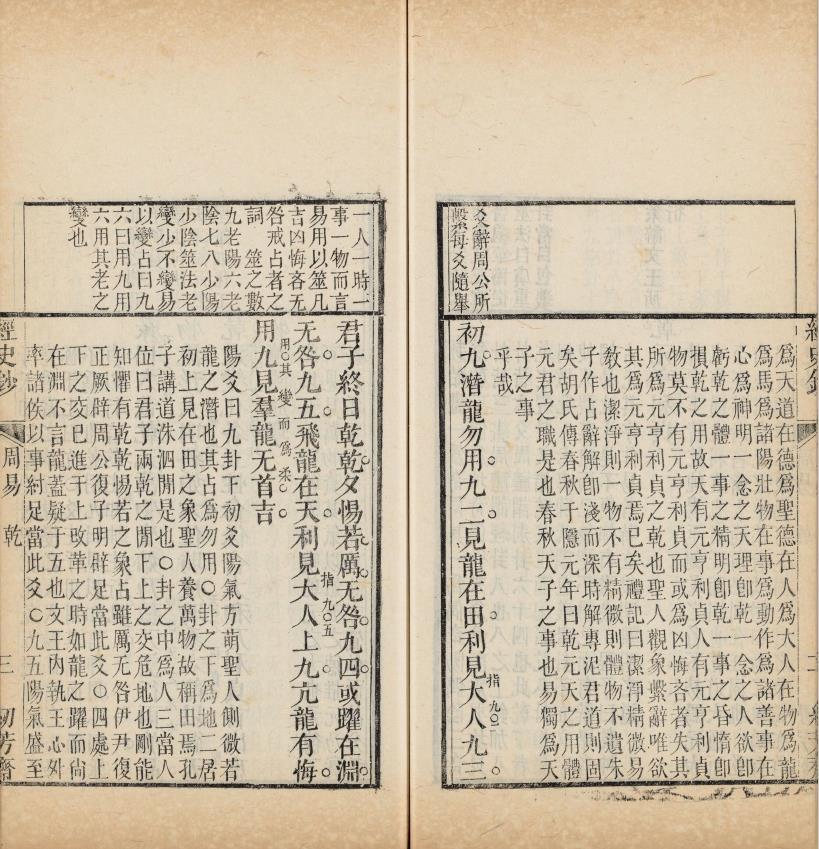 爲天道在德爲聖德在人爲大人在物爲龍
爲馬爲諸陽壯物在事爲動作爲諸善事在
心爲神明一念之天理卽乾一念之人欲卽
虧乾之體一事之精明卽乾一事之昏惰卽
損乾之用故天有元亨利貞人有元亨利貞
物莫不有元亨利貞而或爲凶悔吝者失其
所爲元亨利貞之乾也聖人觀象繫辭唯欲
其爲元亨利貞焉已矣禮記曰潔淨精微易
敎也潔淨則一物不有精微則體物不遺朱
子作占辭解卽淺而深時解專泥君道則固
矣胡氏傳春秋于隱元年曰乾元天之用體
元君之職是也春秋天子之事也易獨爲天
子之事
乎哉
爻辭周公所
繫每爻隨舉
初九潛龍勿用九二見龍在田利見大人九三
指九二
一人一時一
事一物而言
易用以筮凡
吉凶悔吝无
咎戒占者之
詞 筮之數
九老陽六老
陰七八少陽
少陰筮法老
變少不變易
以變占曰九
六曰用九用
六用其老之
變也
君子終日乾乾夕惕若厲无咎九四或躍在淵
无咎九五飛龍在天利見大人上九亢龍有悔
指九五
用其變而爲柔
用九見羣龍无首吉
陽爻曰九卦下初爻陽氣方萌聖人側微若
龍之潛也其占爲勿用○卦之下爲地二居
初上見在田之象聖人養萬物故稱田焉孔
子講道洙泗閒是也○卦之中爲人三當人
位曰君子兩乾之閒下上之交危地也剛能
知懼有乾乾惕若之象占雖厲无咎伊尹復
正厥辟周公復子明辟足當此爻○四處上
下之交已進于上改革之時如龍之躍而尙
在淵不言龍蓋疑于五也文王內執王心外
率諸侯以事紂足當此爻○九五陽氣盛至
經史鈔
周易 乾
三